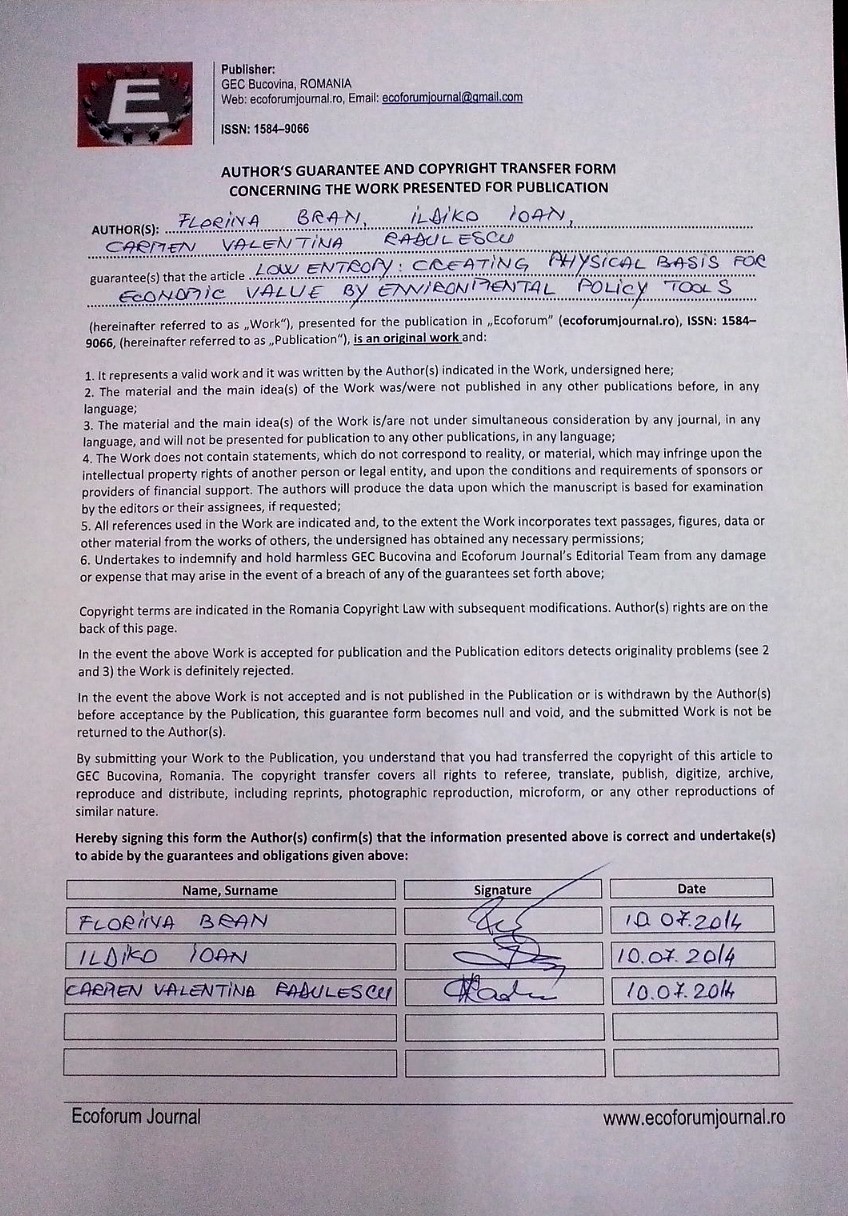 E
Publisher:
GEC Bucovina, ROMANIA
Web: ecoforumjournal.ro, Email: ecoforumjournal@gmail.com
ISSN: 1584–9066
AUTHOR'S GUARANTEE AND COPYRIGHT TRANSFER FORM
CONCERNING THE WORK PRESENTED FOR PUBLICATION
AUTHOR(S): FLORINA BRAN, ILDIKO IOAN,
CARMEN VALENTINA RADULESCU
guarantee(s) that the article LOW ENTROPY: CREATING PHYSICAL BASIS FOR
ECONOMIC VALUE BY ENVIRONMENTAL POLICY TOOLS
(hereinafter referred to as „Work"), presented for the publication in „Ecoforum" (ecoforumjournal.ro), ISSN: 1584–
9066, (hereinafter referred to as „Publication"), is an original work and:
1. It represents a valid work and it was written by the Author(s) indicated in the Work, undersigned here;
2. The material and the main idea(s) of the Work was/were not published in any other publications before, in any
language;
3. The material and the main idea(s) of the Work is/are not under simultaneous consideration by any journal, in any
language, and will not be presented for publication to any other publications, in any language;
4. The Work does not contain statements, which do not correspond to reality, or material, which may infringe upon the
intellectual property rights of another person or legal entity, and upon the conditions and requirements of sponsors or
providers of financial support. The authors will produce the data upon which the manuscript is based for examination
by the editors or their assignees, if requested;
5. All references used in the Work are indicated and, to the extent the Work incorporates text passages, figures, data or
other material from the works of others, the undersigned has obtained any necessary permissions;
6. Undertakes to indemnify and hold harmless GEC Bucovina and Ecoforum Journal's Editorial Team from any damage
or expense that may arise in the event of a breach of any of the guarantees set forth above;
Copyright terms are indicated in the Romania Copyright Law with subsequent modifications. Author(s) rights are on the
back of this page.
In the event the above Work is accepted for publication and the Publication editors detects originality problems (see 2
and 3) the Work is definitely rejected.
In the event the above Work is not accepted and is not published in the Publication or is withdrawn by the Author(s)
before acceptance by the Publication, this guarantee form becomes null and void, and the submitted Work is not be
returned to the Author(s).
By submitting your Work to the Publication, you understand that you had transferred the copyright of this article to
GEC Bucovina, Romania. The copyright transfer covers all rights to referee, translate, publish, digitize, archive,
reproduce and distribute, including reprints, photographic reproduction, microform, or any other reproductions of
similar nature.
Hereby signing this form the Author(s) confirm(s) that the information presented above is correct and undertake(s)
to abide by the guarantees and obligations given above:
Name, Surname Signature Date
FLORINA BRAN 10.07.2014
ILDIKO IOAN 10.07.2014
CARMEN VALENTINA RADULESCU 10.07.2014
Ecoforum Journal www.ecoforumjournal.ro